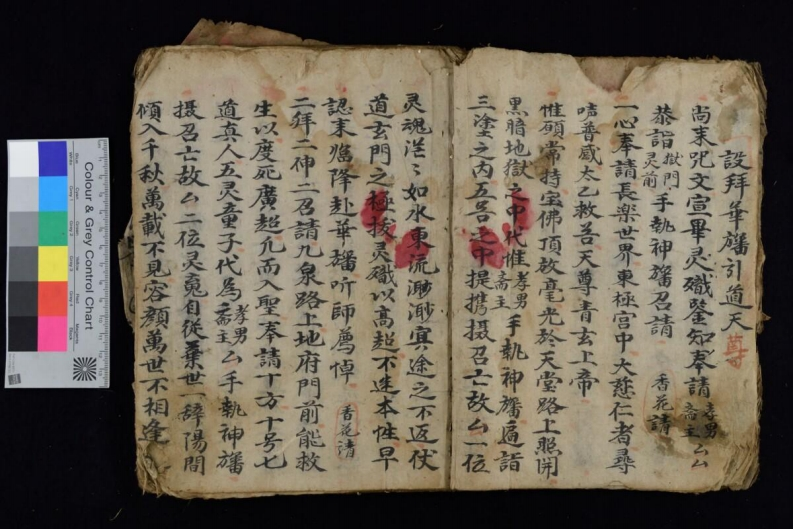 設拜華旛引道天尊
尚来咒文宣畢灵殱鋻知奉請孝男斎主厶厶
恭詣獄門灵前手執神旛召請 香花請
一心奉請長楽世界東極宮中大慈仁者尋
声普感太乙救苦天尊青玄上帝
惟願常持宝佛頂放毫光於天堂路上照開
黒暗地獄之中代惟孝男斎主手執神旛遍詣
三塗之内五苦之中提携摄召亡故厶一位
灵魂茫〻如水東流渺渺冥途之不返伏
道玄門之極拔灵殱以高超不迷本性早
認来臨降赴華旛听師薦悼 香花請
二拜二神二召請九泉路上地府門前能救
生以度死廣超凢而入聖奉請十方十号七
道真人五灵童子代為孝男斎主厶手執神旛
摄召亡故厶二位灵魂自從棄世一辞陽間
傾入千秋萬載不見容顏萬世不相逢
Colour & Grey Control Chart